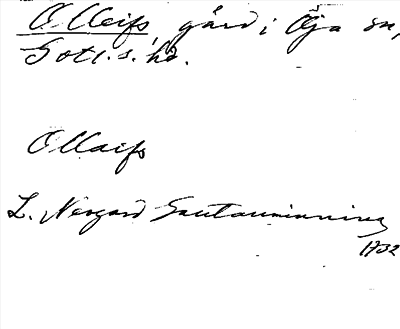 Olleifs, gård i Öja sn,
Gotl. s. hd.
Ollaifs
L. Nergard Gautauminning
1732